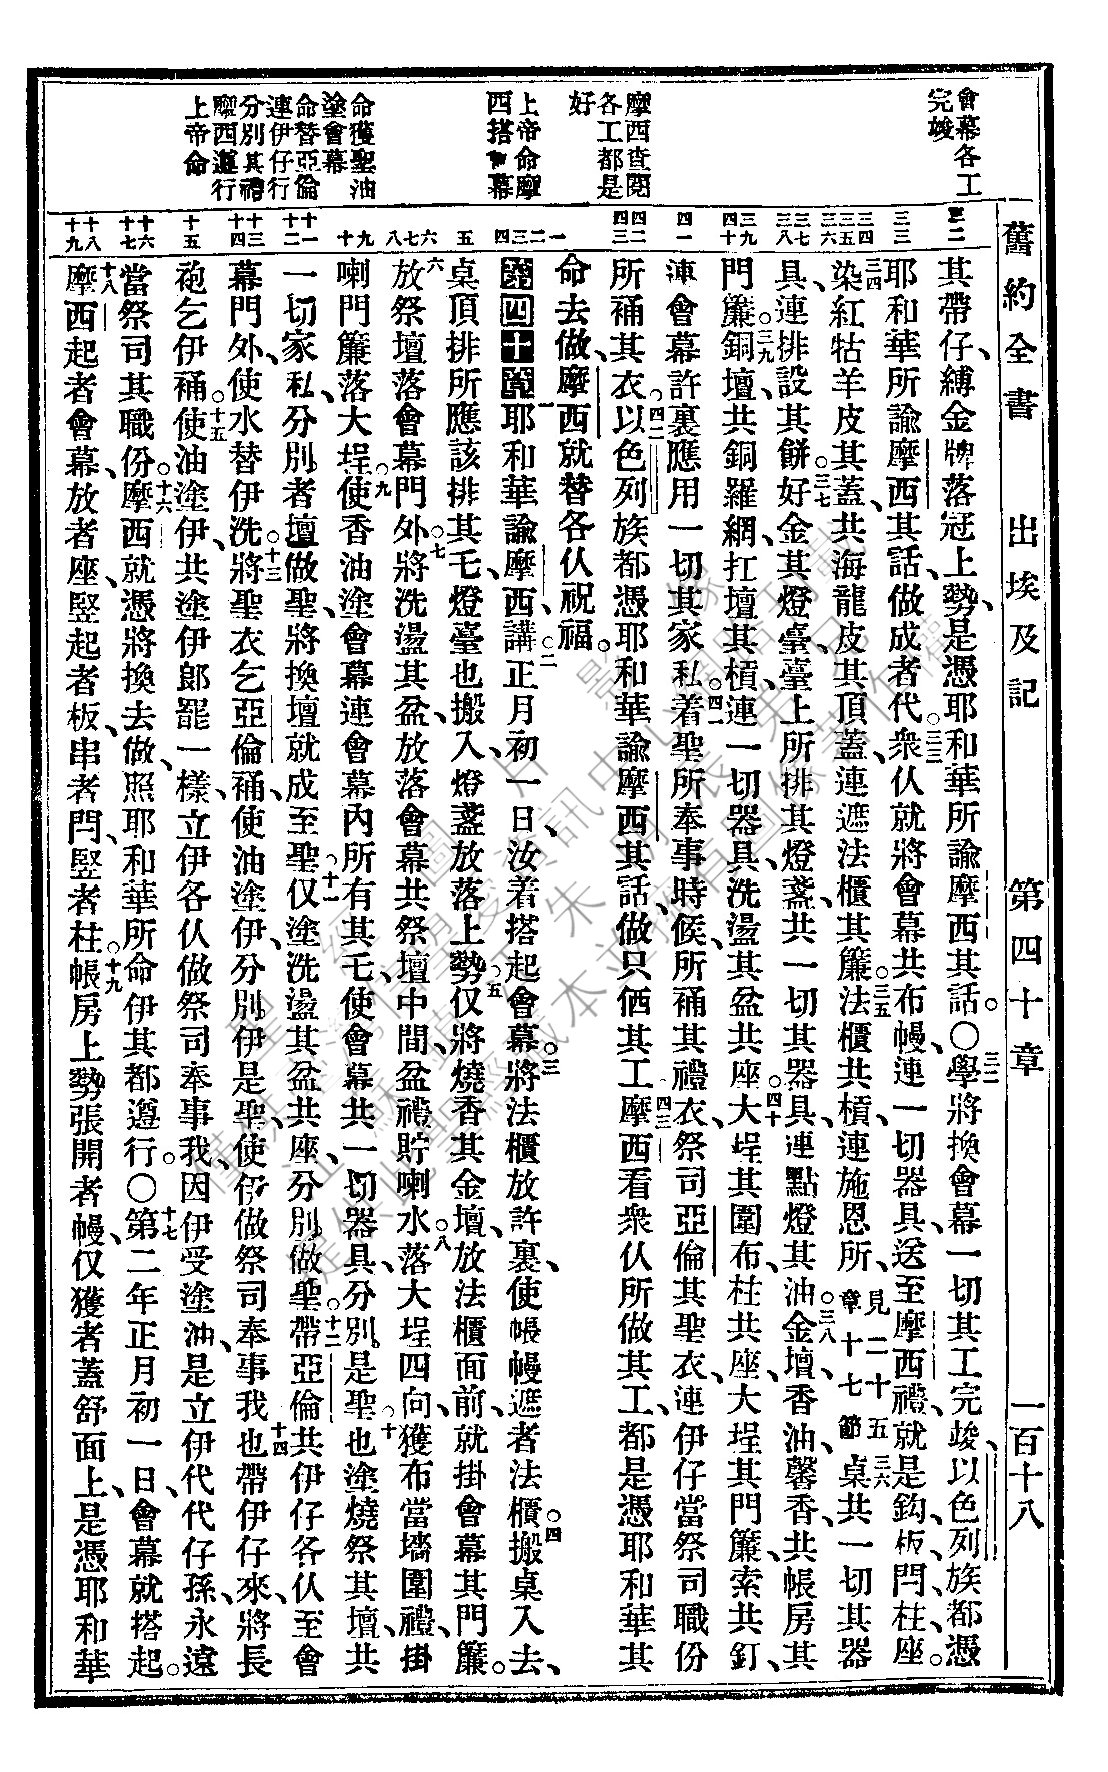 舊約全書 出埃及記 第四十章 一百十八
會幕各工
完竣
摩西查閱
各工都是
好
上帝命摩
西搭會幕
命獲聖油
塗會幕
命替亞倫
連伊仔行
分別其禮
摩西遵行
上帝命
其帶仔、縛金牌落冠上勢、是憑耶和華所諭摩西其話。〇三二學將換會幕一切其工完竣、以色列族都憑
耶和華所諭摩西其話做成者代。三三衆仈就將會幕共布幔、連一切器具、送至摩西禮、就是鈎、板、閂、柱、座。
三四染紅牯羊皮其蓋、共海龍皮其頂蓋、連遮法櫃其簾。三五法櫃共槓、連施恩所、見二十五章十七節三六桌共一切其器
具、連排設其餅。三七好金其燈臺、臺上所排其燈盞、共一切其器具、連點燈其油。三八金壇、香油、馨香、共帳房其
門簾。三九銅壇共銅羅網、扛壇其槓、連一切器具、洗盪其盆共座。四十大埕其圍布、柱共座、大埕其門簾、索共釘、
連會幕許裏應用一切其家私。四一着聖所奉事時候、所䘄其禮衣、祭司亞倫其聖衣、連伊仔當祭司職份
所䘄其衣。四二以色列族都憑耶和華諭摩西其話、做只係其工。四三摩西看衆仈所做其工、都是憑耶和華其
命去做、摩西就替各仈祝福。
第四十章 一耶和華諭摩西講、二正月初一日、汝着搭起會幕。三將法櫃放許裏、使帳幔遮者法櫃。四搬桌入去、
桌頂排所應該排其乇、燈臺也搬入、燈盞放落上勢。五仅將燒香其金壇、放法櫃面前、就掛會幕其門簾。
六放祭壇落會幕門外。七將洗盪其盆、放落會幕共祭壇中間、盆禮貯喇水。八落大埕四向、獲布當墻圍禮、掛
喇門簾落大埕。九使香油塗會幕、連會幕內所有其乇、使會幕共一切器具、分別是聖。十也塗燒祭其壇、共
一切家私、分別者壇做聖、將換壇就成至聖。十一仅塗洗盪其盆共座、分別做聖。十二帶亞倫共伊仔各仈、至會
幕門外、使水替伊洗。十三將聖衣乞亞倫䘄、使油塗伊、分別伊是聖、使伊做祭司奉事我。十四也帶伊仔來、將長
袍乞伊䘄。十五使油塗伊、共塗伊郎罷一樣、立伊各仈做祭司奉事我、因伊受塗油、是立伊代代仔孫、永遠
當祭司其職份。十六摩西就憑將換去做、照耶和華所命伊其都遵行。〇十七第二年正月初一日、會幕就搭起。
十八摩西起者會幕、放者座、竪起者板、串者閂、竪者柱。十九帳房上勢張開者幔、仅獲者蓋舒面上、是憑耶和華